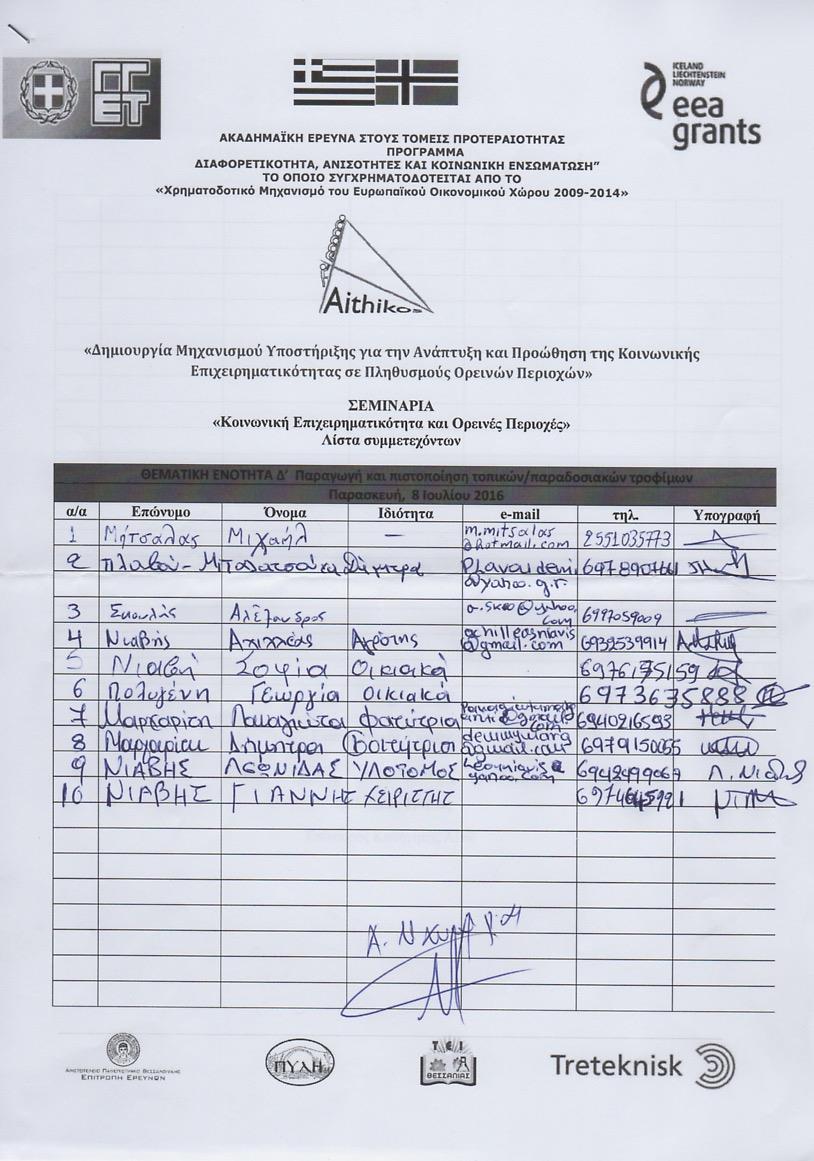 ΓΓ
ΕΤ
ICELAND
LIECHTENSTEIN
NORWAY
eea
grants
ΑΚΑΔΗΜΑΪΚΗ ΕΡΕΥΝΑ ΣΤΟΥΣ ΤΟΜΕΙΣ ΠΡΟΤΕΡΑΙΟΤΗΤΑΣ
ΠΡΟΓΡΑΜΜΑ
ΔΙΑΦΟΡΕΤΙΚΟΤΗΤΑ, ΑΝΙΣΟΤΗΤΕΣ ΚΑΙ ΚΟΙΝΩΝΙΚΗ ΕΝΣΩΜΑΤΩΣΗ”
ΤΟ ΟΠΟΙΟ ΣΥΓΧΡΗΜΑΤΟΔΟΤΕΙΤΑΙ ΑΠΟ ΤΟ
«Χρηματοδοτικό Μηχανισμό του Ευρωπαϊκού Οικονομικού Χώρου 2009-2014»
Aithikos
«Δημιουργία Μηχανισμού Υποστήριξης για την Ανάπτυξη και Προώθηση της Κοινωνικής
Επιχειρηματικότητας σε Πληθυσμούς Ορεινών Περιοχών»
ΣΕΜΙΝΑΡΙΑ
«Κοινωνική Επιχειρηματικότητα και Ορεινές Περιοχές»
Λίστα συμμετεχόντων
ΘΕΜΑΤΙΚΗ ΕΝΟΤΗΤΑ Δ’ Παραγωγή και πιστοποίηση τοπικών/παραδοσιακών τροφίμων
Παρασκευή, 8 Ιουλίου 2016
α/α Επώνυμο Όνομα Ιδιότητα e-mail τηλ. Υπογραφή
1 Μήτσαλας Μιχαήλ – m.mitsalas@hotmail.com 2551035773
2 Πλαβού - Δήμητρα @yahoo.gr
3 Σκουλής Αλέξανδρος 6997059009
4 Νιαβής Αχιλλέας Αγρότης achilleasniavis@gmail.com 6932539914
5 Νιαβή Σοφία Οικιακά 6976175159
6 Πολυγένη Γεωργία οικιακά 6973675888
7 Μαργαρίτη Παναγιώτα φοιτήτρια 6940916593
8 Μαργαρίτη Δήμητρα Φοιτήτρια @gmail.com 6979150055
9 ΝΙΑΒΗΣ ΛΕΩΝΙΔΑΣ ΥΛΟΤΟΜΟΣ leoniavis@yahoo.com Λ. Νιαβής
10 ΝΙΑΒΗΣ ΓΙΑΝΝΗΣ ΧΕΙΡΙΣΤΗΣ
ΑΡΙΣΤΟΤΕΛΕΙΟ ΠΑΝΕΠΙΣΤΗΜΙΟ ΘΕΣΣΑΛΟΝΙΚΗΣ
ΕΠΙΤΡΟΠΗ ΕΡΕΥΝΩΝ
ΠΥΛΗ
ΤΕΙ
ΘΕΣΣΑΛΙΑΣ
Treteknisk